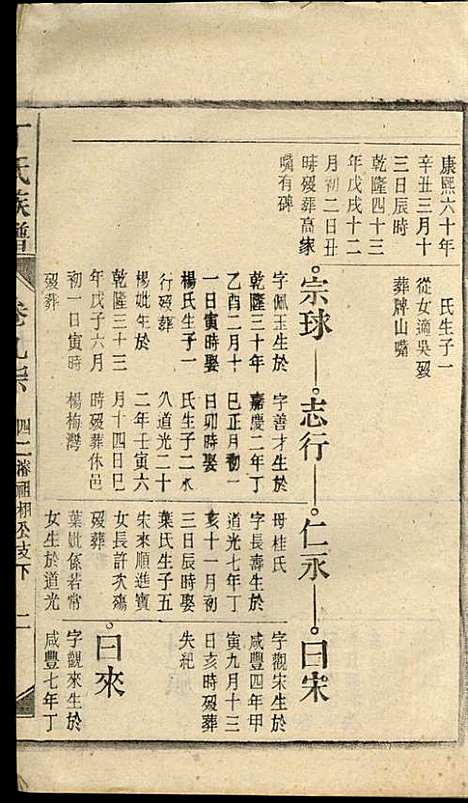 康熙六十年
辛丑三月十
三日辰時
乾隆四十三
年戊戌十二
月初二日丑
時歿葬高家
嘴有碑
氏生子一
從女適吳歿
葬牌山嘴
宗球
字佩玉生於
乾隆三十年
乙酉二月十
一日寅時娶
楊氏生子一
行歿葬
楊妣生於
乾隆三十三
年戊子六月
初一日寅時
歿葬
志行
字善才生於
嘉慶二年丁
巳正月初一
日卯時娶
氏生子二永
八道光二十
二年壬寅六
月十四日巳
時歿葬休邑
楊梅灣
仁永
母桂氏
字長壽生於
道光七年丁
亥十一月初
三日辰時娶
葉氏生子五
宋來順進寶
女長許次殤
歿葬
葉妣係若常
女生於道光
曰宋
字觀宋生於
咸豐四年甲
寅九月十三
日亥時歿葬
失紀
曰來
字觀來生於
咸豐七年丁
丁氏族譜
卷九宗
四二濬祖相公支下
二